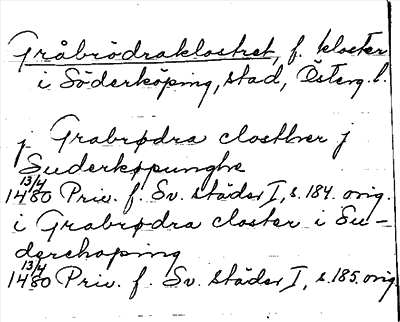 Gråbrödraklostret, f. kloster
i Söderköping, stad, Österg. l.
j Grabrødra closther j
Suderkøpunghe
13/4 1480 Priv. f. Sv. städer I, s. 184. orig.
i Grabrødra closter i Su-
derchøping
13/4 1480 Priv. f. Sv. städer I, s. 185. orig.